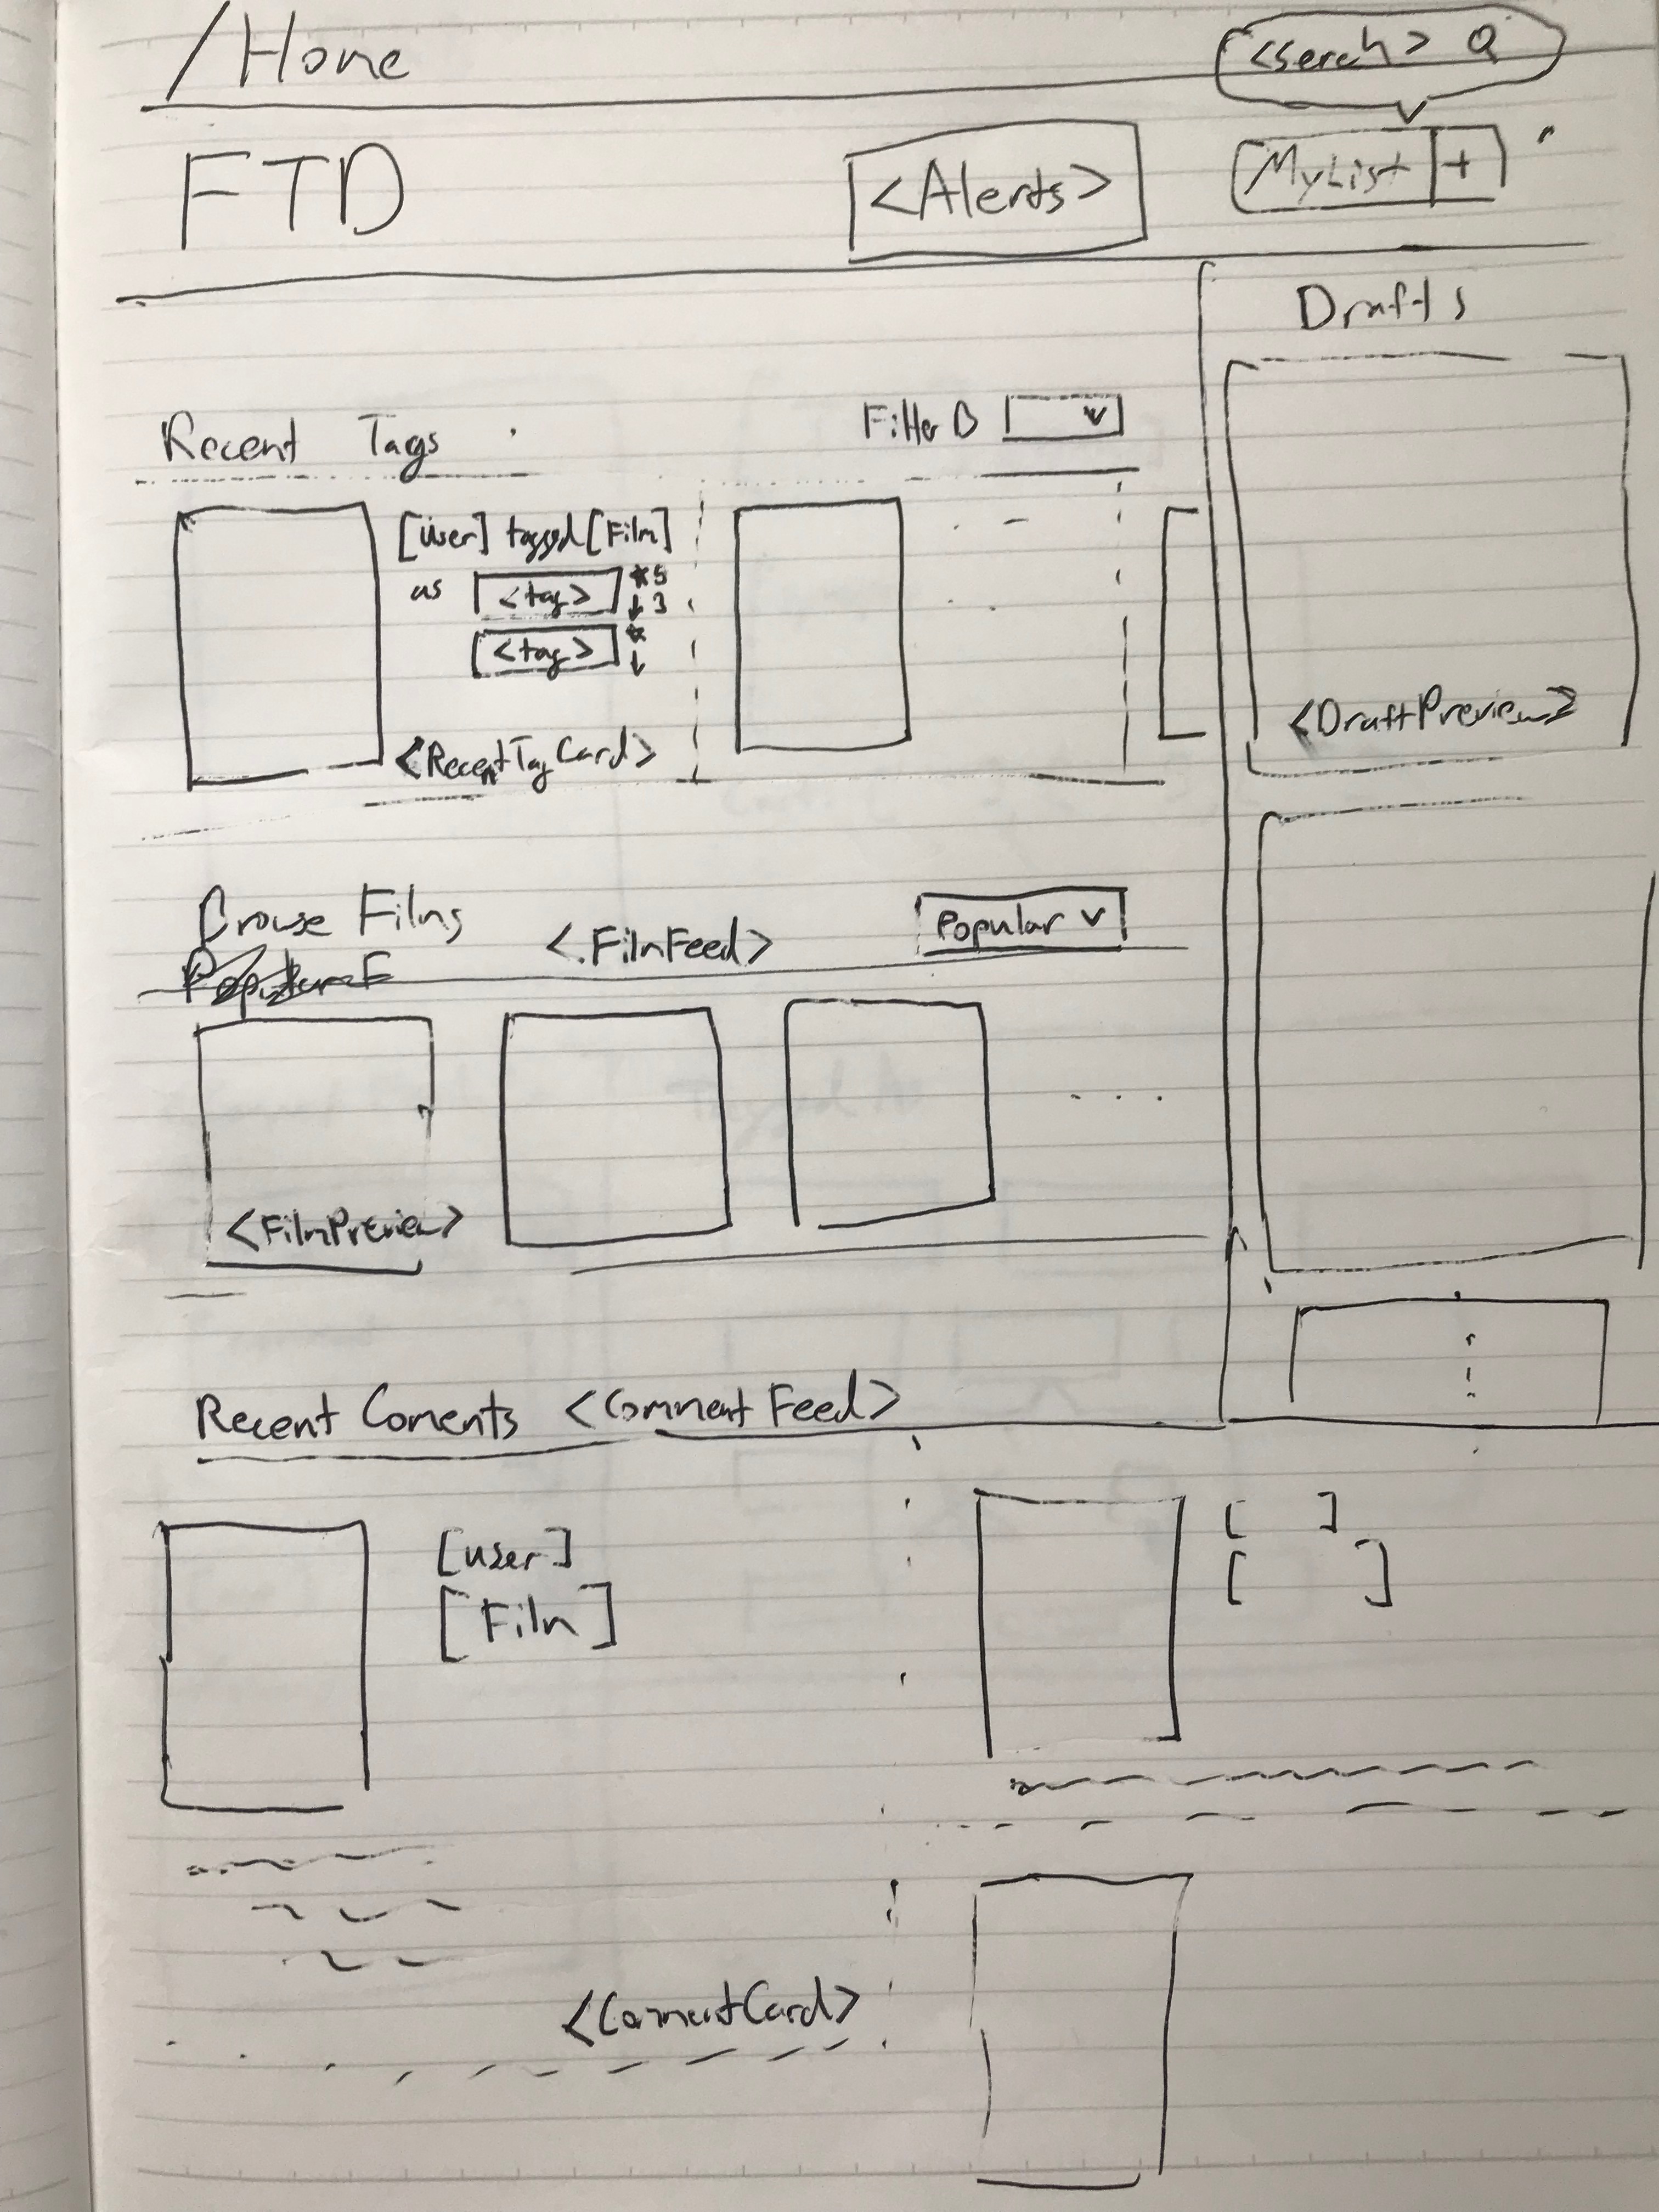 /Home
<serch> Q
FTD
<Alerts>
MyList +
Drafts
Recent Tags
Filter B v
[user] tagged [Film]
as <tag> *5
↓3
<tag> *
↓
<RecentTagCard>
<DraftPreview>
Browse Films
<FilmFeed>
Popular v
<FilmPreview>
Recent Coments <CommentFeed>
[user]
[Film]
[ ]
[ ]
<CommentCard>